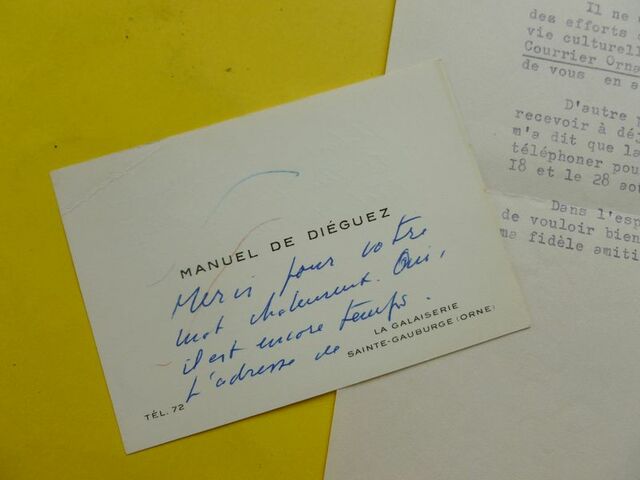 MANUEL DE DIÉGUEZ
Merci pour votre
mot chaleureux. Oui,
il est encore temps.
L'adresse de
LA GALAISERIE
SAINTE-GAUBURGE (ORNE)
TÉL. 72
Il ne
des efforts
vie culturell
Courrier Orna
de vous en a
D'autre p
recevoir à déj
m'a dit que la
téléphoner pou
18 et le 28 aoû
Dans l'esp
de vouloir bien
ma fidèle amiti